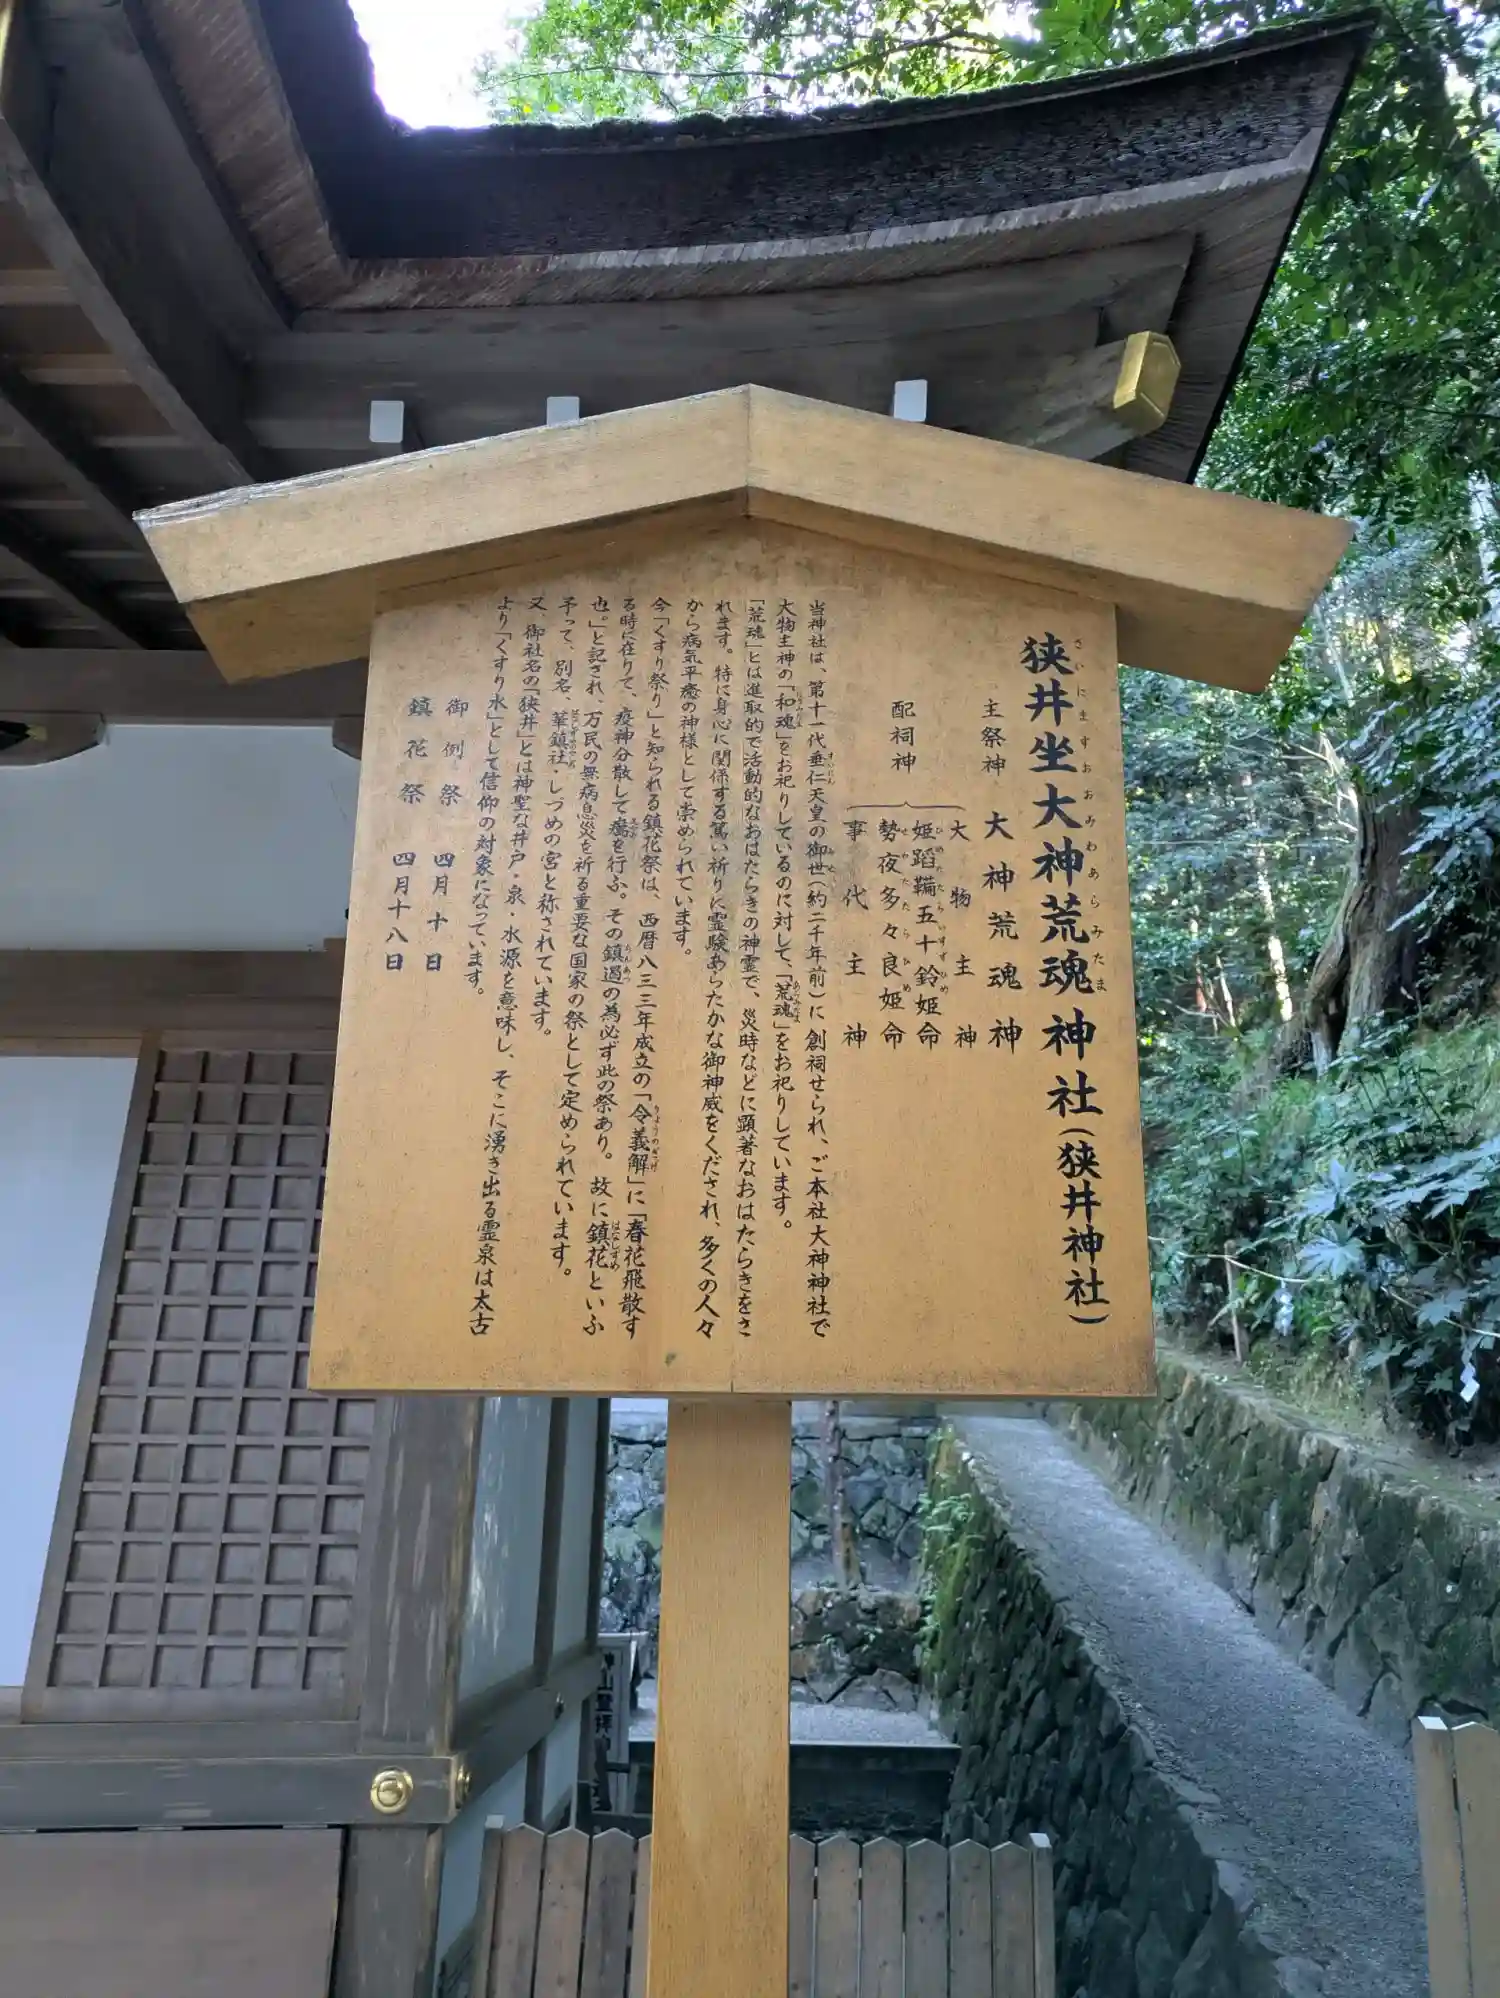 狭井坐大神荒魂神社(狭井神社)
さいにますおおみわあらみたま
主祭神 大神荒魂神
配祠神
大物主神
姫蹈鞴五十鈴姫命
ひめたたらいすずひめ
勢夜多々良姫命
せやたたらひめ
事代主神
当神社は、第十一代垂仁天皇の御世(約二千年前)に創祠せられ、ご本社大神神社で
すいにん
みよ
大物主神の「和魂」をお祀りしているのに対して、「荒魂」をお祀りしています。
にぎみたま
あらみたま
「荒魂」とは進取的で活動的なおはたらきの神霊で、災時などに顕著なおはたらきをさ
れます。特に身心に関係する篤い祈りに霊験あらたかな御神威をくだされ、多くの人々
から病気平癒の神様として崇められています。
今「くすり祭り」と知られる鎮花祭は、西暦八三三年成立の「令義解」に「春花飛散す
りょうのぎげ
る時に在りて、疫神分散して癘を行ふ。その鎮遏の為必ず此の祭あり。故に鎮花といふ
ちんあつ
はなしずめ
也。」と記され、万民の無病息災を祈る重要な国家の祭として定められています。
予って、別名、華鎮社・しづめの宮と称されています。
又、御社名の「狭井」とは神聖な井戸・泉・水源を意味し、そこに湧き出る霊泉は太古
より「くすり水」として信仰の対象になっています。
御例祭 四月十日
鎮花祭 四月十八日